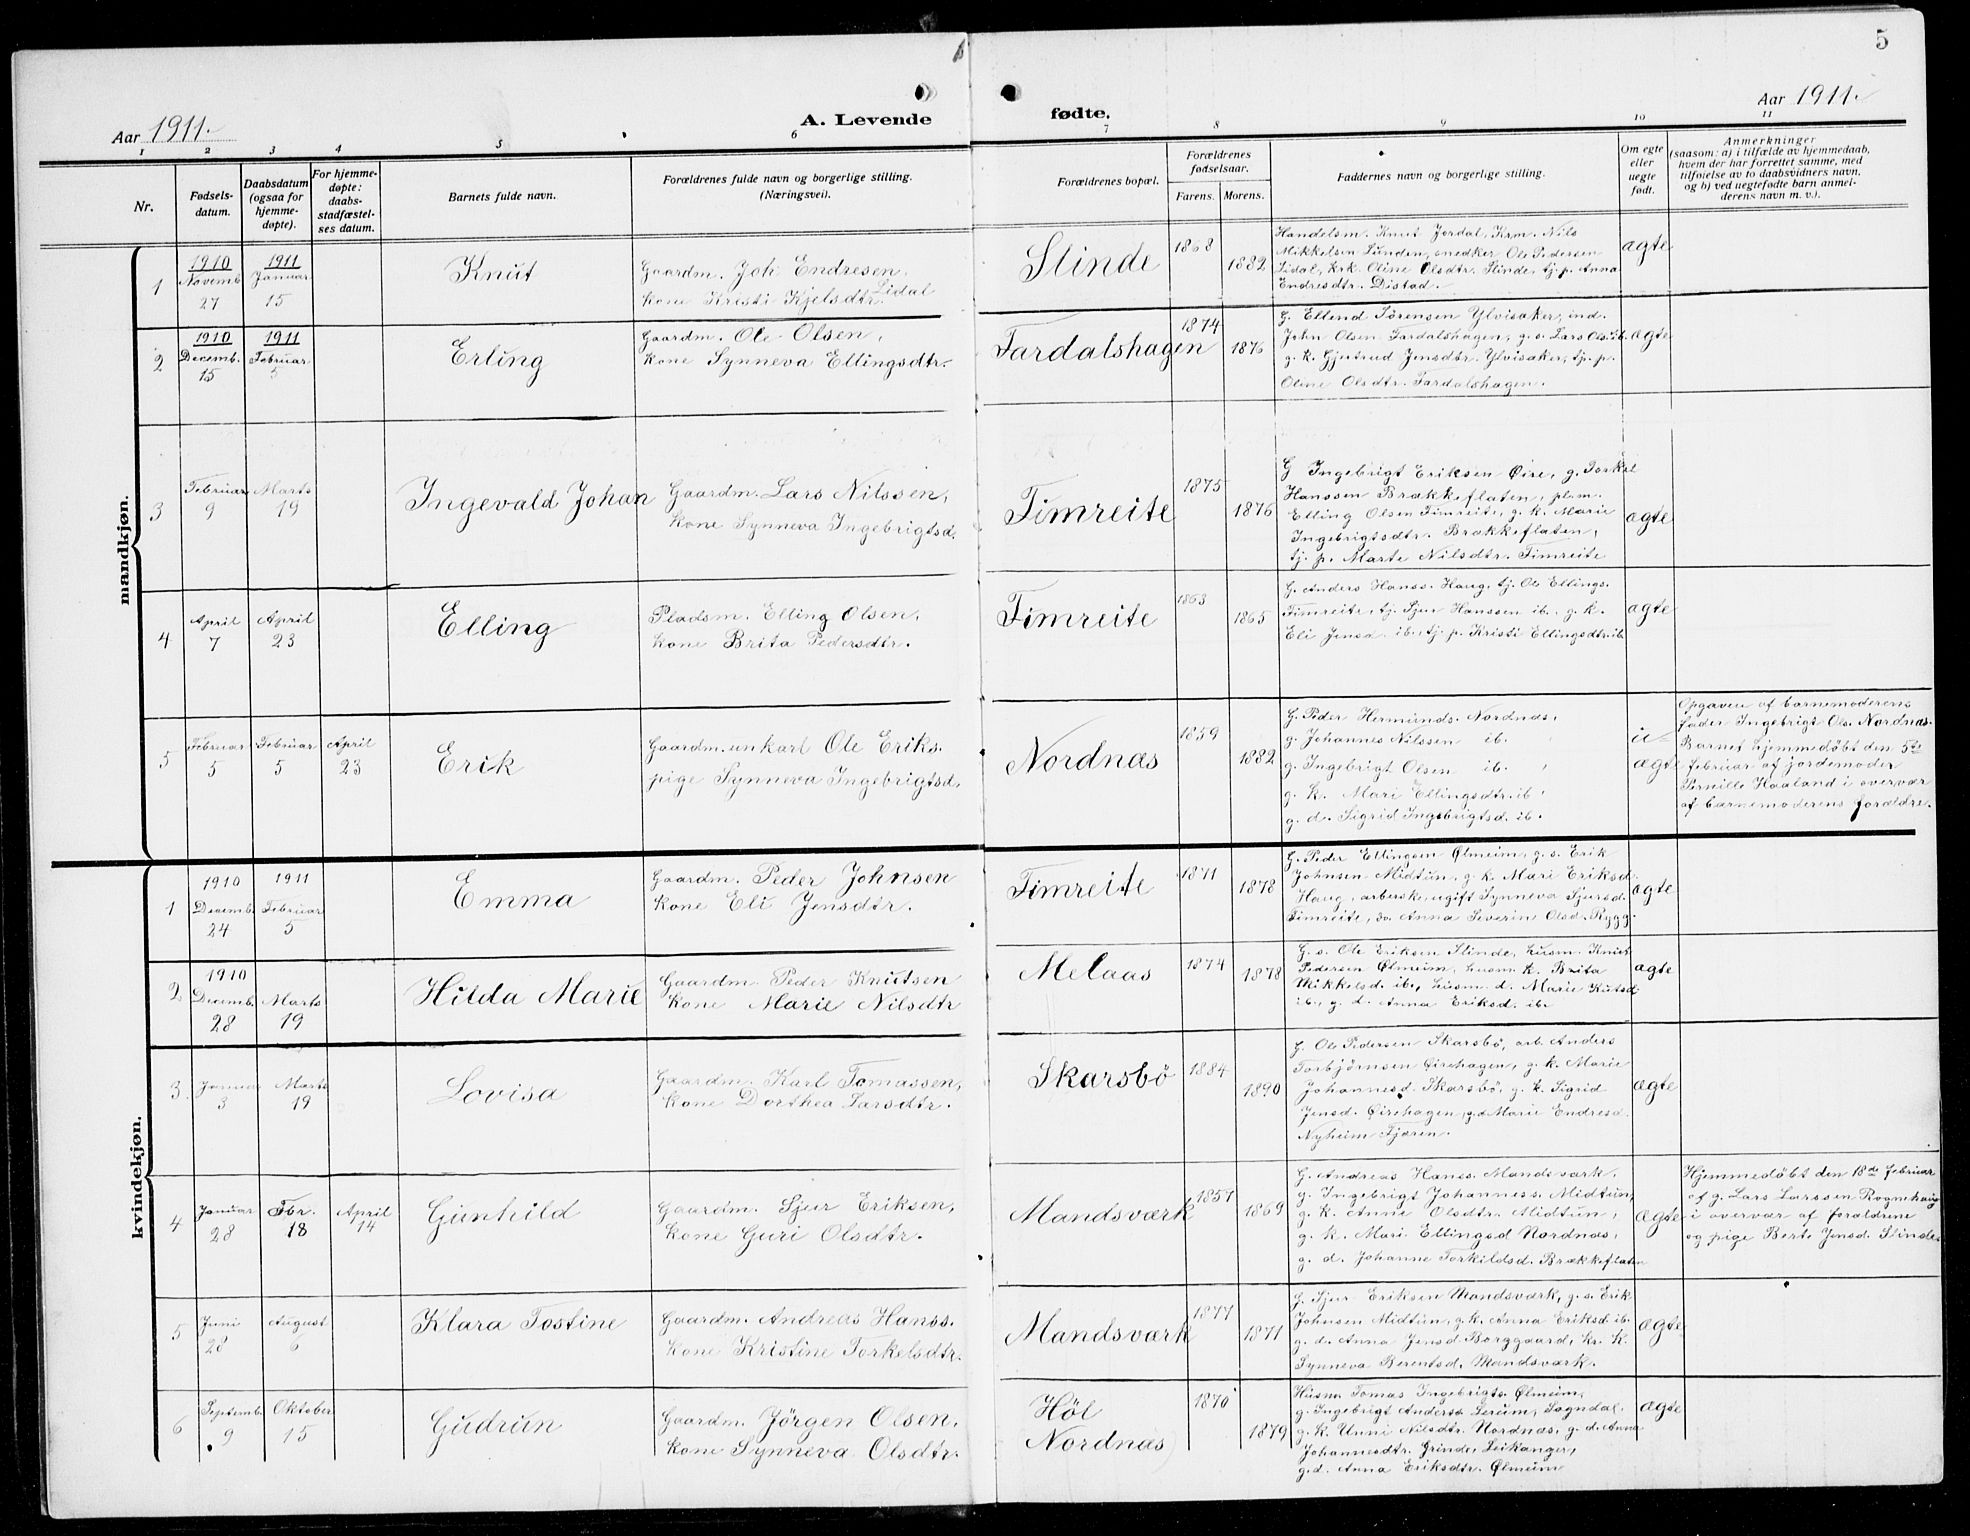 5
Aar 1911.
A. Levende
fødte.
Aar 1911.
1 2 3 4 5 6 7 8 9 10 11
Nr.
Fødsels-
datum.
Daabsdatum
(ogsaa for
hjemme-
døpte).
For hjemme-
døpte:
daabs-
stadfæstel-
ses datum.
Barnets fulde navn.
Forældrenes fulde navn og borgerlige stilling.
(Næringsvei).
Forældrenes bopæl.
Forældrenes
fødselsaar.
Farens. Morens.
Faddernes navn og borgerlige stilling.
Om egte
eller
uegte
født.
Anmerkninger
(saasom: a) i tilfælde av hjemmedaab,
hvem der har forrettet samme, med
tilføielse av to daabsvidners navn,
og b) ved uegtefødte barn anmel-
derens navn m. v.).
mandkjøn.
1
1910
Novemb.
27
1911
Januar
15
Knut
Gaardm. Joh. Endresen
Lidal
kone Kristi Kjelsdtr.
Slinde
1868
1882
Handelsm. Knut Jordal, Krm. Nils
Mikkelsen Lunden, snedker Ole Pedersen
Lidal, krk. Oline Olsdtr. Slinde, tj. p. Anna
Endresdtr. Distad.
ægte
2
1910
Decemb.
15
1911
Februar
5
Erling
Gaardm. Ole Olsen,
kone Synneva Ellingsdtr.
Fardalshagen
1874
1876
G. Ellend Sørensen Ylvisaker, ind.
John Olsen Fardalshagen, g. s. Lars Ols. ib.
g. k. Gjertrud Jensdtr. Ylvisaker, tj. p.
Oline Olsdtr. Fardalshagen.
ægte
3
Februar
9
Marts
19
Ingevald Johan
Gaardm. Lars Nilssen,
kone Synneva Ingebrigtsd.
Timreite
1875
1876
G Ingebrigt Eriksen Øire, g. Torkel
Hanssen Brækkeflaten, pl. m.
Elling Olsen Timreite, g. k. Marie
Ingebrigtsdtr. Brækkeflaten,
tj. p. Marte Nilsdtr. Timreite
ægte
4
April
7
April
23
Elling
Pladsm. Elling Olsen,
kone Brita Pedersdtr.
Timreite
1863
1865
G. Anders Hanss. Haug, tj. Ole Ellings.
Timreite, tj. Sjur Hanssen ib., g. k.
Eli Jensd. ib., tj. p. Kristi Ellingsdtr. ib
ægte
5
Februar
5
Februar
5
April
23
Erik
Gaardm. unkarl Ole Eriks.
pige Synneva Ingebrigtsd.
Nordnæs
1859
1882
G. Peder Hermunds. Nordnæs,
g. Johannes Nilssen ib.
g. Ingebrigt Olsen ib.
g. k. Mari Ellingsdtr. ib.
g. d. Sigrid Ingebrigtsd. ib.
u-
ægte
Opgaven af barnemoderens
fader Ingebrigt Ols. Nordnæs.
Barnet hjemmedøbt den 5te
februar af jordemoder
Pernille Haaland i overvær
af barnemoderens forældre.
kvindekjøn.
1
1910
Decemb.
24
1911
Februar
5
Emma
Gaardm. Peder Johnsen
kone Eli Jensdtr.
Timreite
1871
1878
G. Peder Ellingsen Ølmeim, g. s. Erik
Johnsen Midtun, g. k. Mari Eriksd.
Haug, arbeiderske, ugift Synneva Sjursd.
Timreite, do. Anna Severine Olsd. Rygg.
ægte
2
1910
Decemb.
28
Marts
19
Hilda Marie
Gaardm. Peder Knutsen
kone Marie Nilsdtr
Melaas
1874
1878
G. s. Ole Eriksen Slinde, husm. Knut
Pedersen Ølmeim, husm. k. Brita
Mikkelsd. ib., husm. d. Marie Kutsd
ib., g. d. Anna Eriksd. ib.
ægte
3
Januar
3
Marts
19
Lovisa
Gaardm. Karl Tomassen,
kone Dorthea Larsdtr.
Skarsbø
1884
1890
G. Ole Pedersen Skarsbø, arb. Anders
Torbjørnsen Øirehagen, g. k. Marie
Johannesd. Skarsbø, g. k. Sigrid
Jensd. Øirehagen, g. d. Marie Endresd.
Nyheim Fjæren.
ægte
4
Januar
28
Fbr.
18
April
14
Gunhild
Gaardm. Sjur Eriksen,
kone Guri Olsdtr.
Mandsværk
1857
1869
G. Andreas Hanss. Mandsværk.
g. Ingebrigt Johanness. Midtun,
g. k. Anne Olsdtr. Midtun,
g. k. Mari Ellingsd Nordnæs,
g. d. Johanne Torkildsd. Brækkeflaten
ægte
Hjemmedøbt den 18de februar
af g. Lars Larssen Rognehaug
i overvær af forældrene
og pige Berte Jensd. Slinde.
5
Juni
28
August
6
Klara Tostine
Gaardm. Andreas Hanss.
kone Kristine Torkelsdtr.
Mandsværk
1877
1871
G. Sjur Eriksen Mandsværk, g. s. Erik
Johnsen Midtun, g. k. Anna Eriksd ib.
g. d. Anna Jensd Borggaard, kr. k.
Synneva Berentsd. Mandsværk.
ægte
6
Septemb.
9
Oktober
15
Gudrun
Gaardm. Jörgen Olsen,
kone Synneva Olsdtr.
Høl
Nordnæs
1870
1879
Husm. Tomas Ingebrigts. Ølmeim,
g. Ingebrigt Anders. Lerum, Sogndal.
g. k. Unni Nilsdtr. Nordnæs, g. d. Anna
Johannesdtr. Grinde, Leikanger,
g. d. Anna Eriksdtr. Ølmeim
ægte